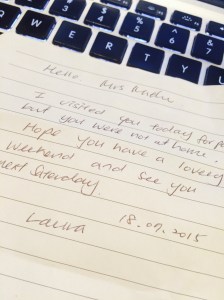 Hello Mrs
I visited you today for
but you were not at home
Hope you have a lovely
weekend and see you
next Saturday.
Laura 18.09.2015